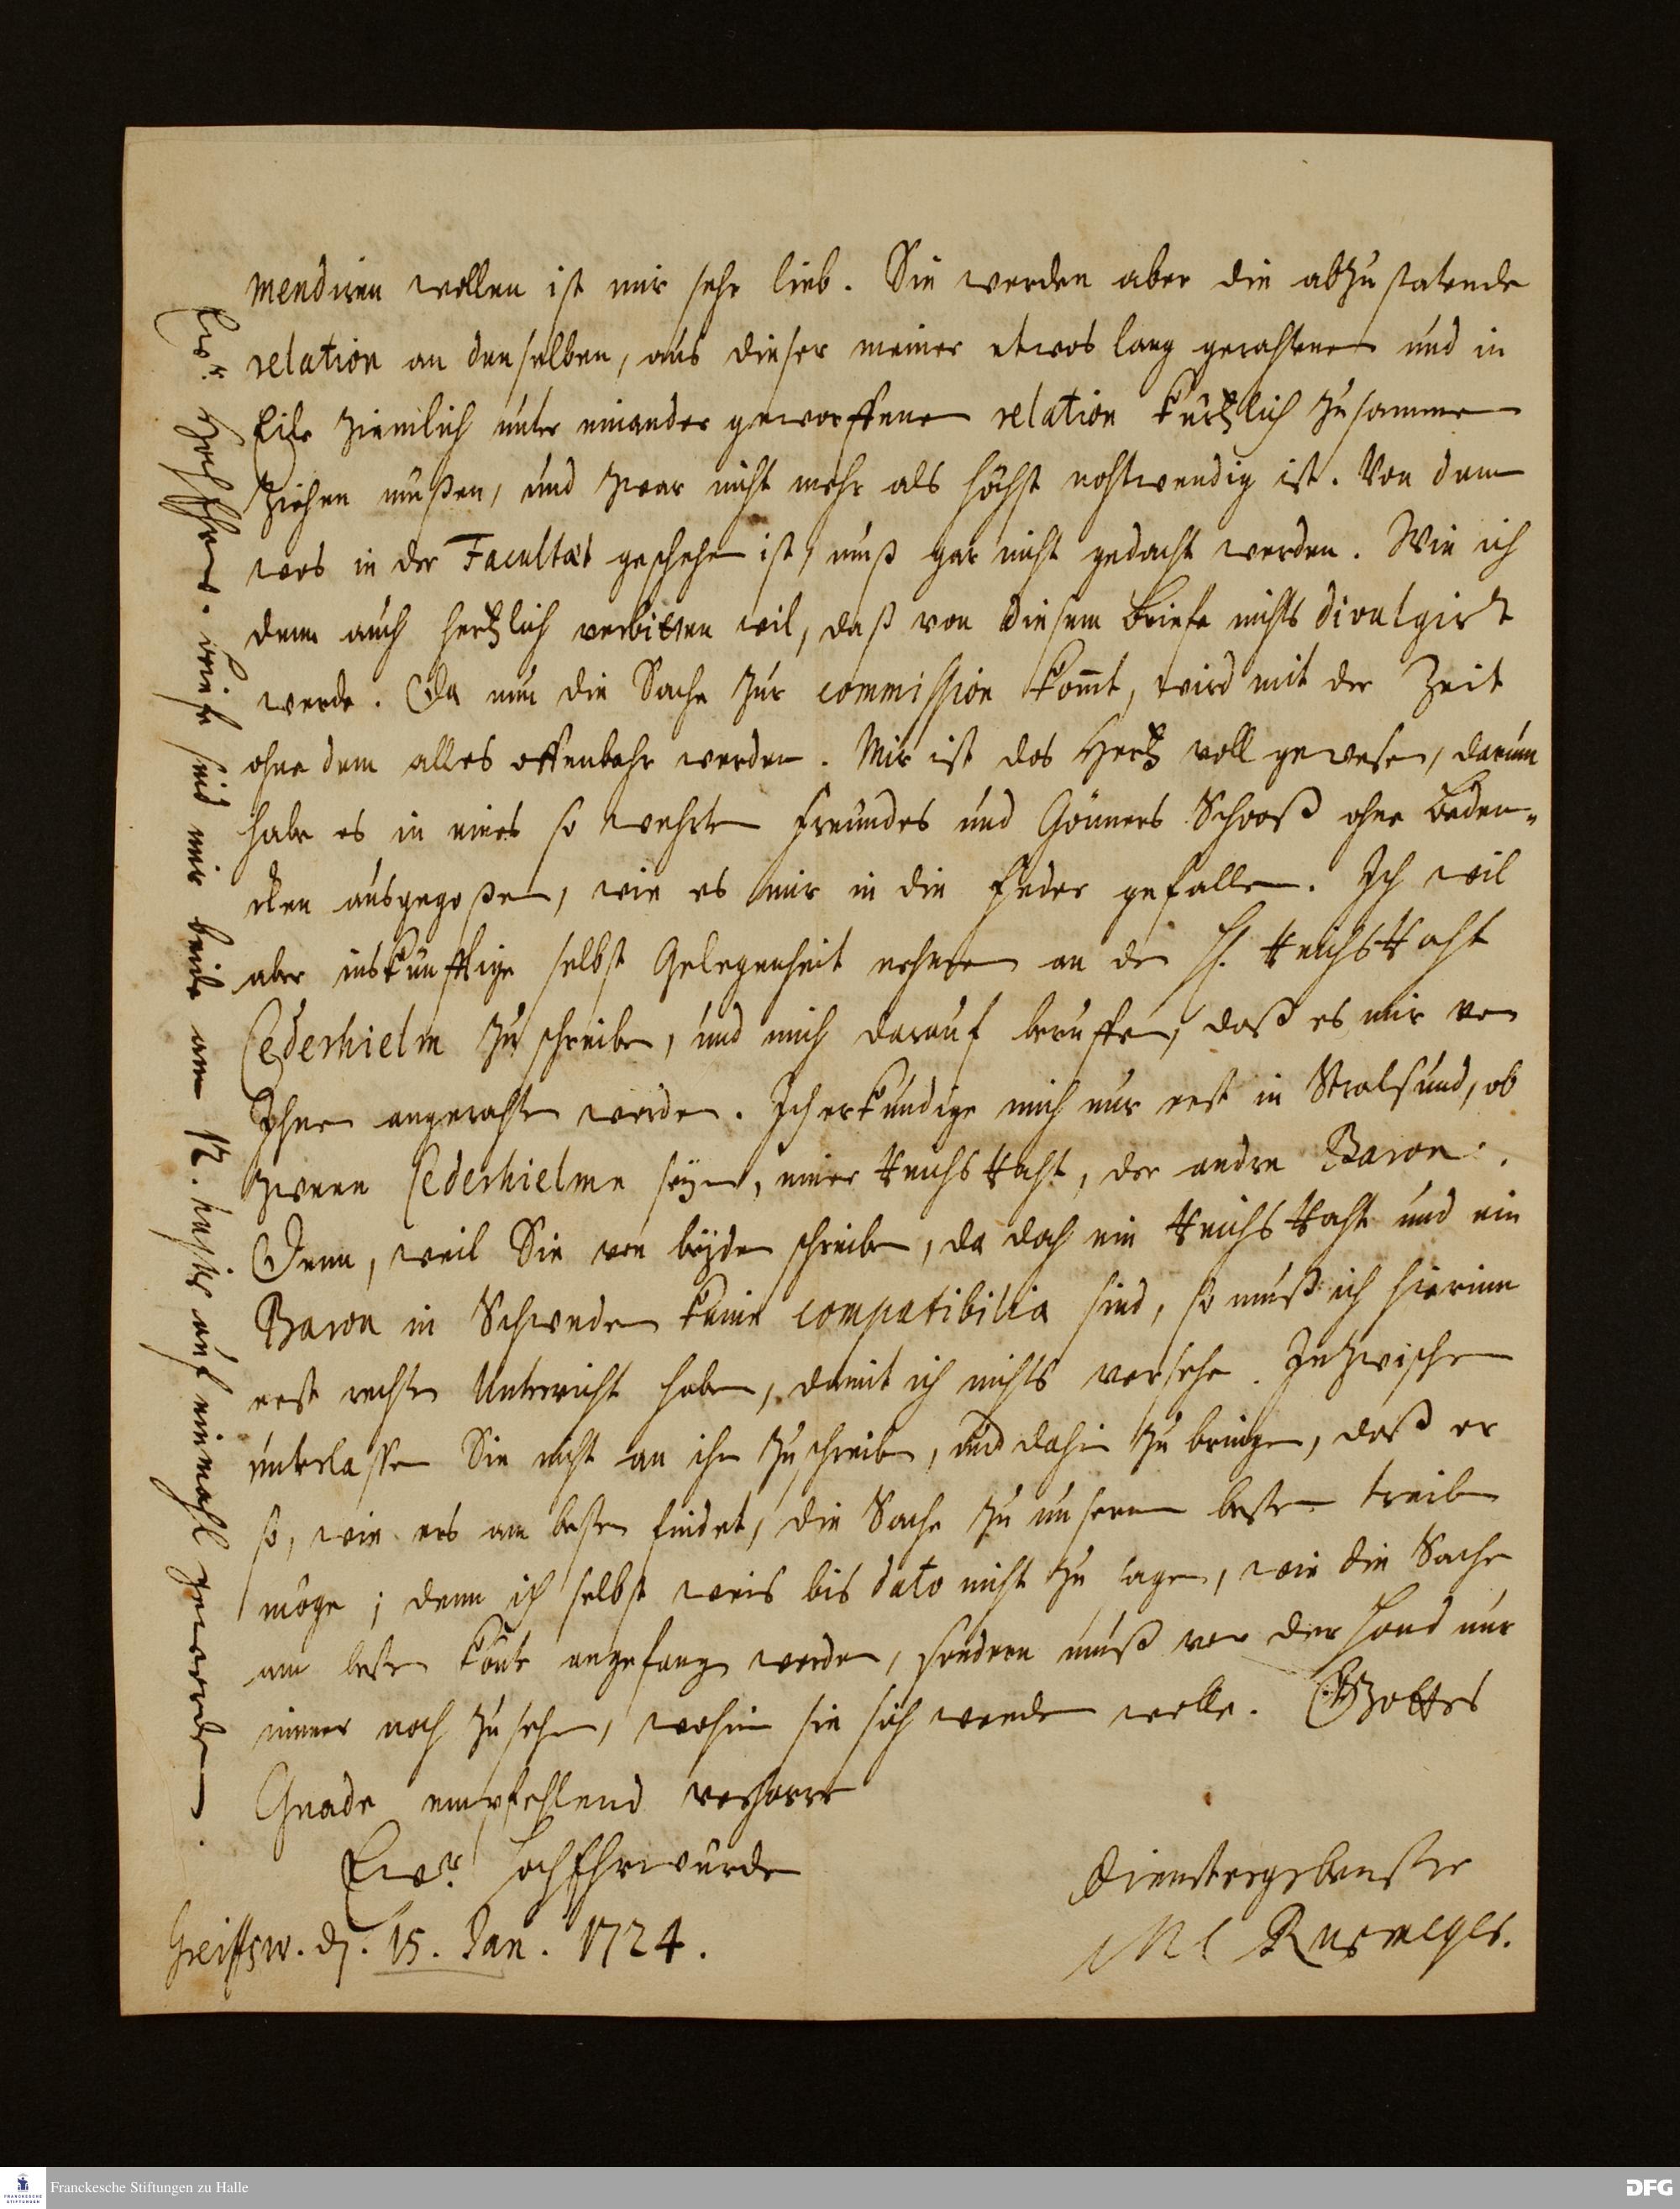 mendiren wollen ist mir sehr lieb. Sie werden aber die abzustatende
relation an denselben, aus dieser meiner etwas lang gerahtenen und in
Eile ziemlich unter einander geworffenen relation kürtzlich zusammen
ziehen müßen, und zwar nicht mehr als höchst nohtwendig ist. Von dem
was in der Facultæt geschehen ist, muß gar nicht gedacht werden. Wie ich
denn auch hertzlich verbitten wil, daß von diesem briefe nichts divulgirt
werde. Da nun die Sache zur commission kom̄t, wird mit der Zeit
ohne dem alles offenbahr werden. Mir ist das Hertz voll gewesen, darum
habe es in eines so wehrten Freundes und Gönners Schooß ohne beden-
cken ausgegoßen, wie es mir in die Feder gefallen. Ich wil
aber inskünfftige selbst Gelegenheit nehmen an den H. ReichsRaht
Cederhielm zu schreiben, und mich darauf beruffen, daß es mir von
Ihnen angerahten worden. Ich erkundige mich nur erst in Stralsund, ob
zween Cederhielme seyn, einer ReichsRaht, der andre Baron.
Denn, weil Sie von beyden schreiben, da doch ein ReichsRaht und ein
Baron in Schweden keine compatibilia sind, so muß ich hierinn
erst rechten Unterricht haben, damit ich nichts versehe. Inzwischen
unterlassen Sie nicht an ihn zu schreiben, und dahin zu bringen, daß er
so, wie ers am besten findet, die Sache zu unserem besten treiben
möge; denn ich selbst weis bis dato nicht zu sagen, wie die Sache
am besten könte angefangen werden, sondern muß vor der Hand nur
immer noch zusehen, wohin sie sich wenden wolle. Gottes
Gnade empfehlend verharre
Ewr. HochEhrwürden
dienstergebenster
Greiffsw. d. 15. Jan. 1724.
Ewr. HochEhrw. briefe sind mir beide am 12. hujus auf einmahl geworden.
Franckesche Stiftungen zu Halle
DFG